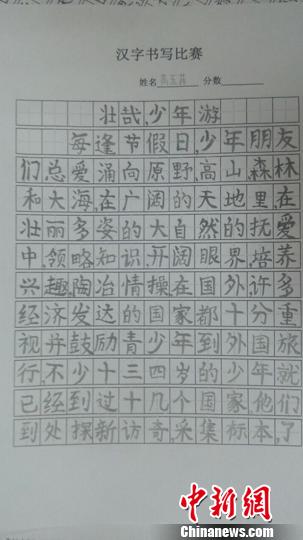 汉字书写比赛
姓名 高玉茜 分数
壮哉,少年游
每逢节假日,少年朋友
们总爱涌向原野,高山,森林
和大海,在广阔的天地里,在
壮丽多姿的大自然的抚爱
中,领略知识,开阔眼界,培养
兴趣,陶冶情操在国外许多
经济发达的国家都十分重
视并鼓励青少年到外国旅
行,不少十三四岁的少年就
已经到过十几个国家他们
到处探新访奇,采集标本,了
中新网
Chinanews.com